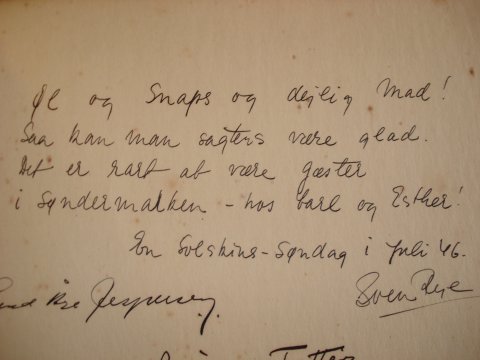 Øl og Snaps og dejlig Mad!
Saa kan man sagtens være glad.
Det er rart at være gæster
i Søndermarken - hos Carl og Esther!
En Solskins-Søndag i Juli 46.
Jespersen.
Sven Rye